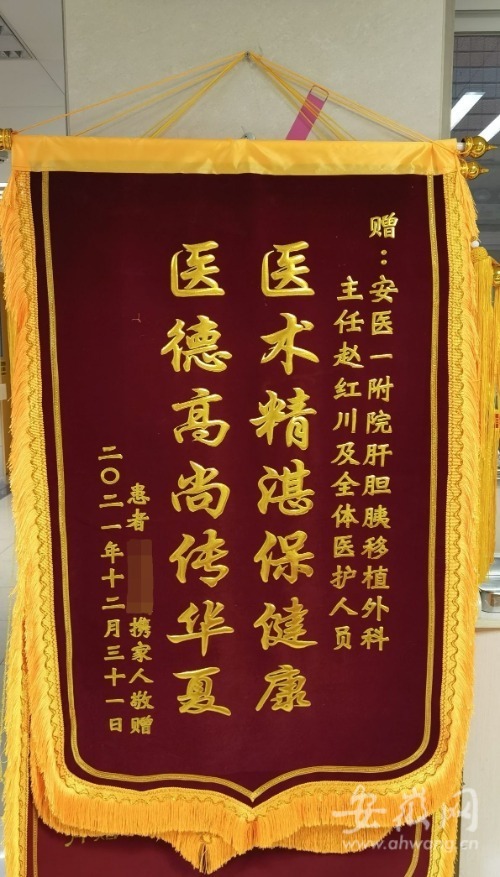 赠：安医一附院肝胆胰移植外科
主任赵红川及全体医护人员
医术精湛保健康
医德高尚传华夏
患者
携家人敬赠
二〇二一年十二月三十一日
安徽网
www.ahwang.cn